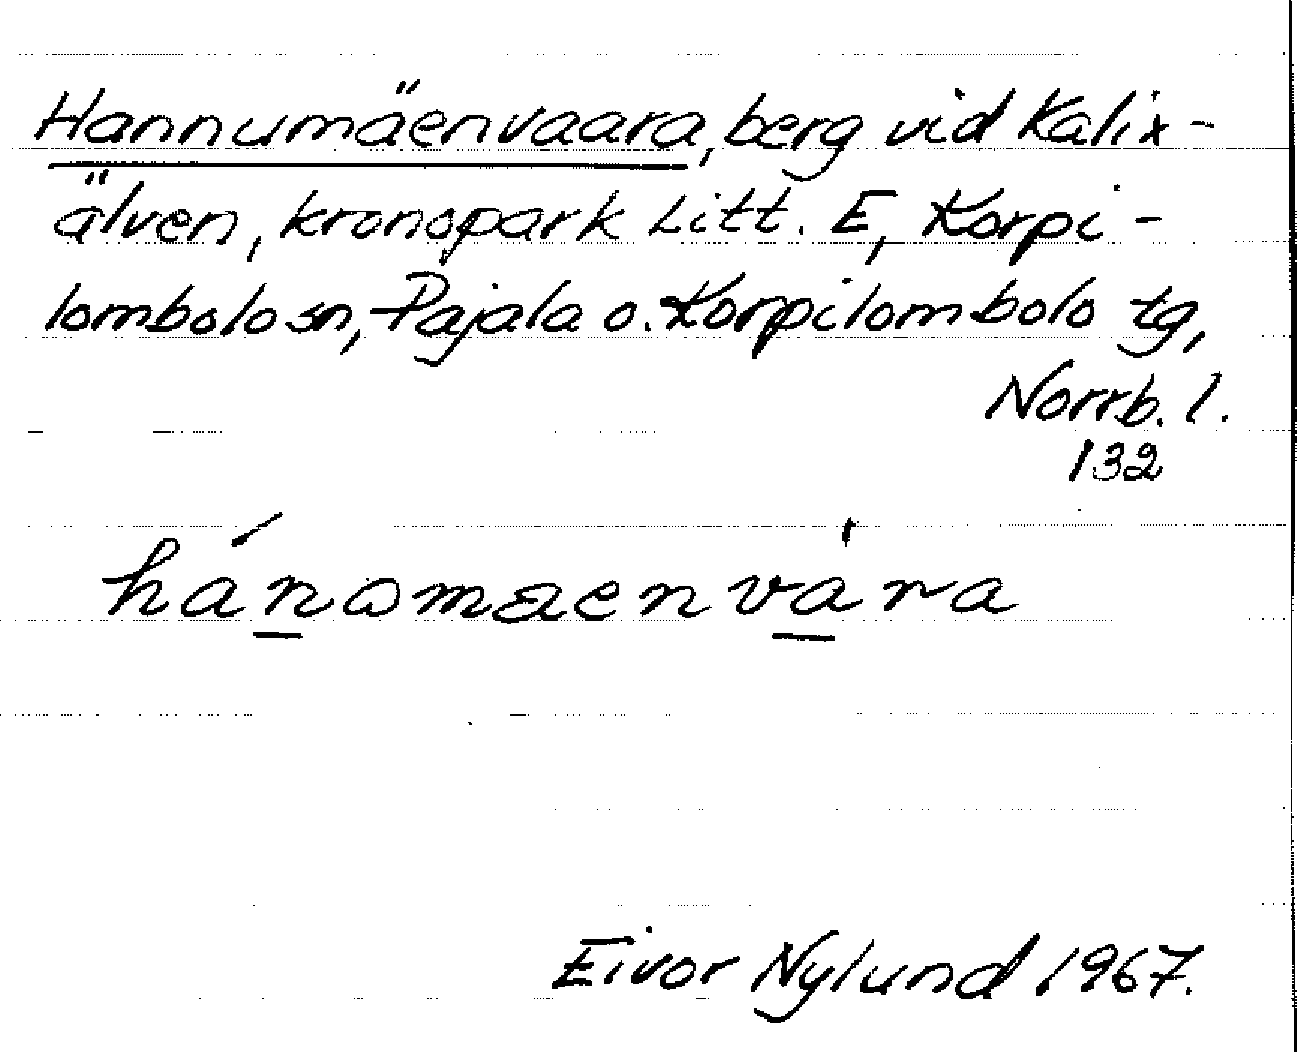 Hannumäenvaara, berg vid Kalix-
älven, kronopark Litt. E, Korpi-
lombolo sn, Pajala o. Korpilombolo tg,
Norrb. l.
132
hánωmaenvára
Eivor Nylund 1967.